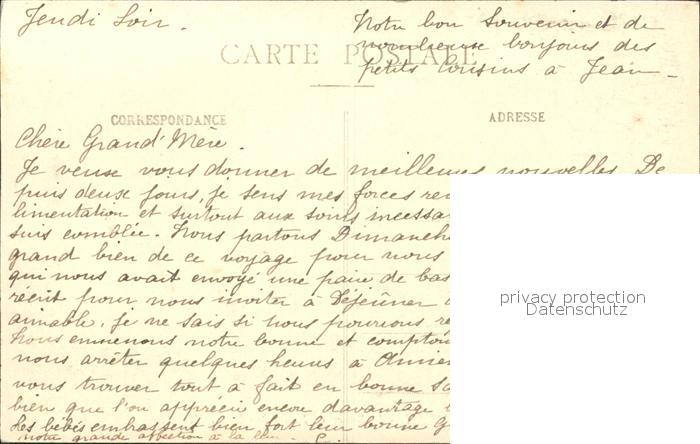 Jeudi Soir.
Notre bon Souvenir et de
nombreuse bonjours des
petits Cousins à Jean_
CARTE POSTALE
CORRESPONDANCE
ADRESSE
Chère Grand'Mère.
Je veuse vous donner de meilleures nouvelles. De
puis deuse jours, je sens mes forces re
limentation et surtout aux soins incessa
suis comblée. Nous partons Dimanche
grand bien de ce voyage pour nous
qui nous avait envoyé une paire de bas
récrit pour nous inviter à Déjeûner
aimable. Je ne sais si nous pourrons re
Nous emmenons notre bonne et compton
nous arrêter quelques heures à Amien
vous trouver tout à fait en bonne Sa
bien que l'on apprécie encore davantage
Les bébés embrassent bien fort leur bonne G
notre grande affection à la
privacy protection
Datenschutz